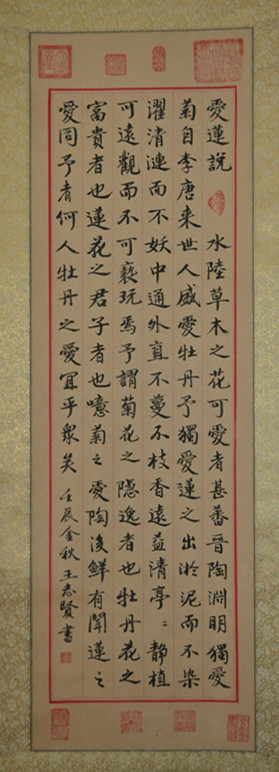 愛蓮說 水陸草木之花可愛者甚蕃晉陶淵明獨愛
菊自李唐来世人盛愛牡丹予獨愛蓮之出淤泥而不染
濯清漣而不妖中通外直不蔓不枝香遠益清亭〻靜植
可遠觀而不可褻玩焉予謂菊花之隱逸者也牡丹花之
富貴者也蓮花之君子者也噫菊之愛陶後鮮有聞蓮之
愛同予者何人牡丹之愛宜乎眾矣 壬辰金秋王志賢書